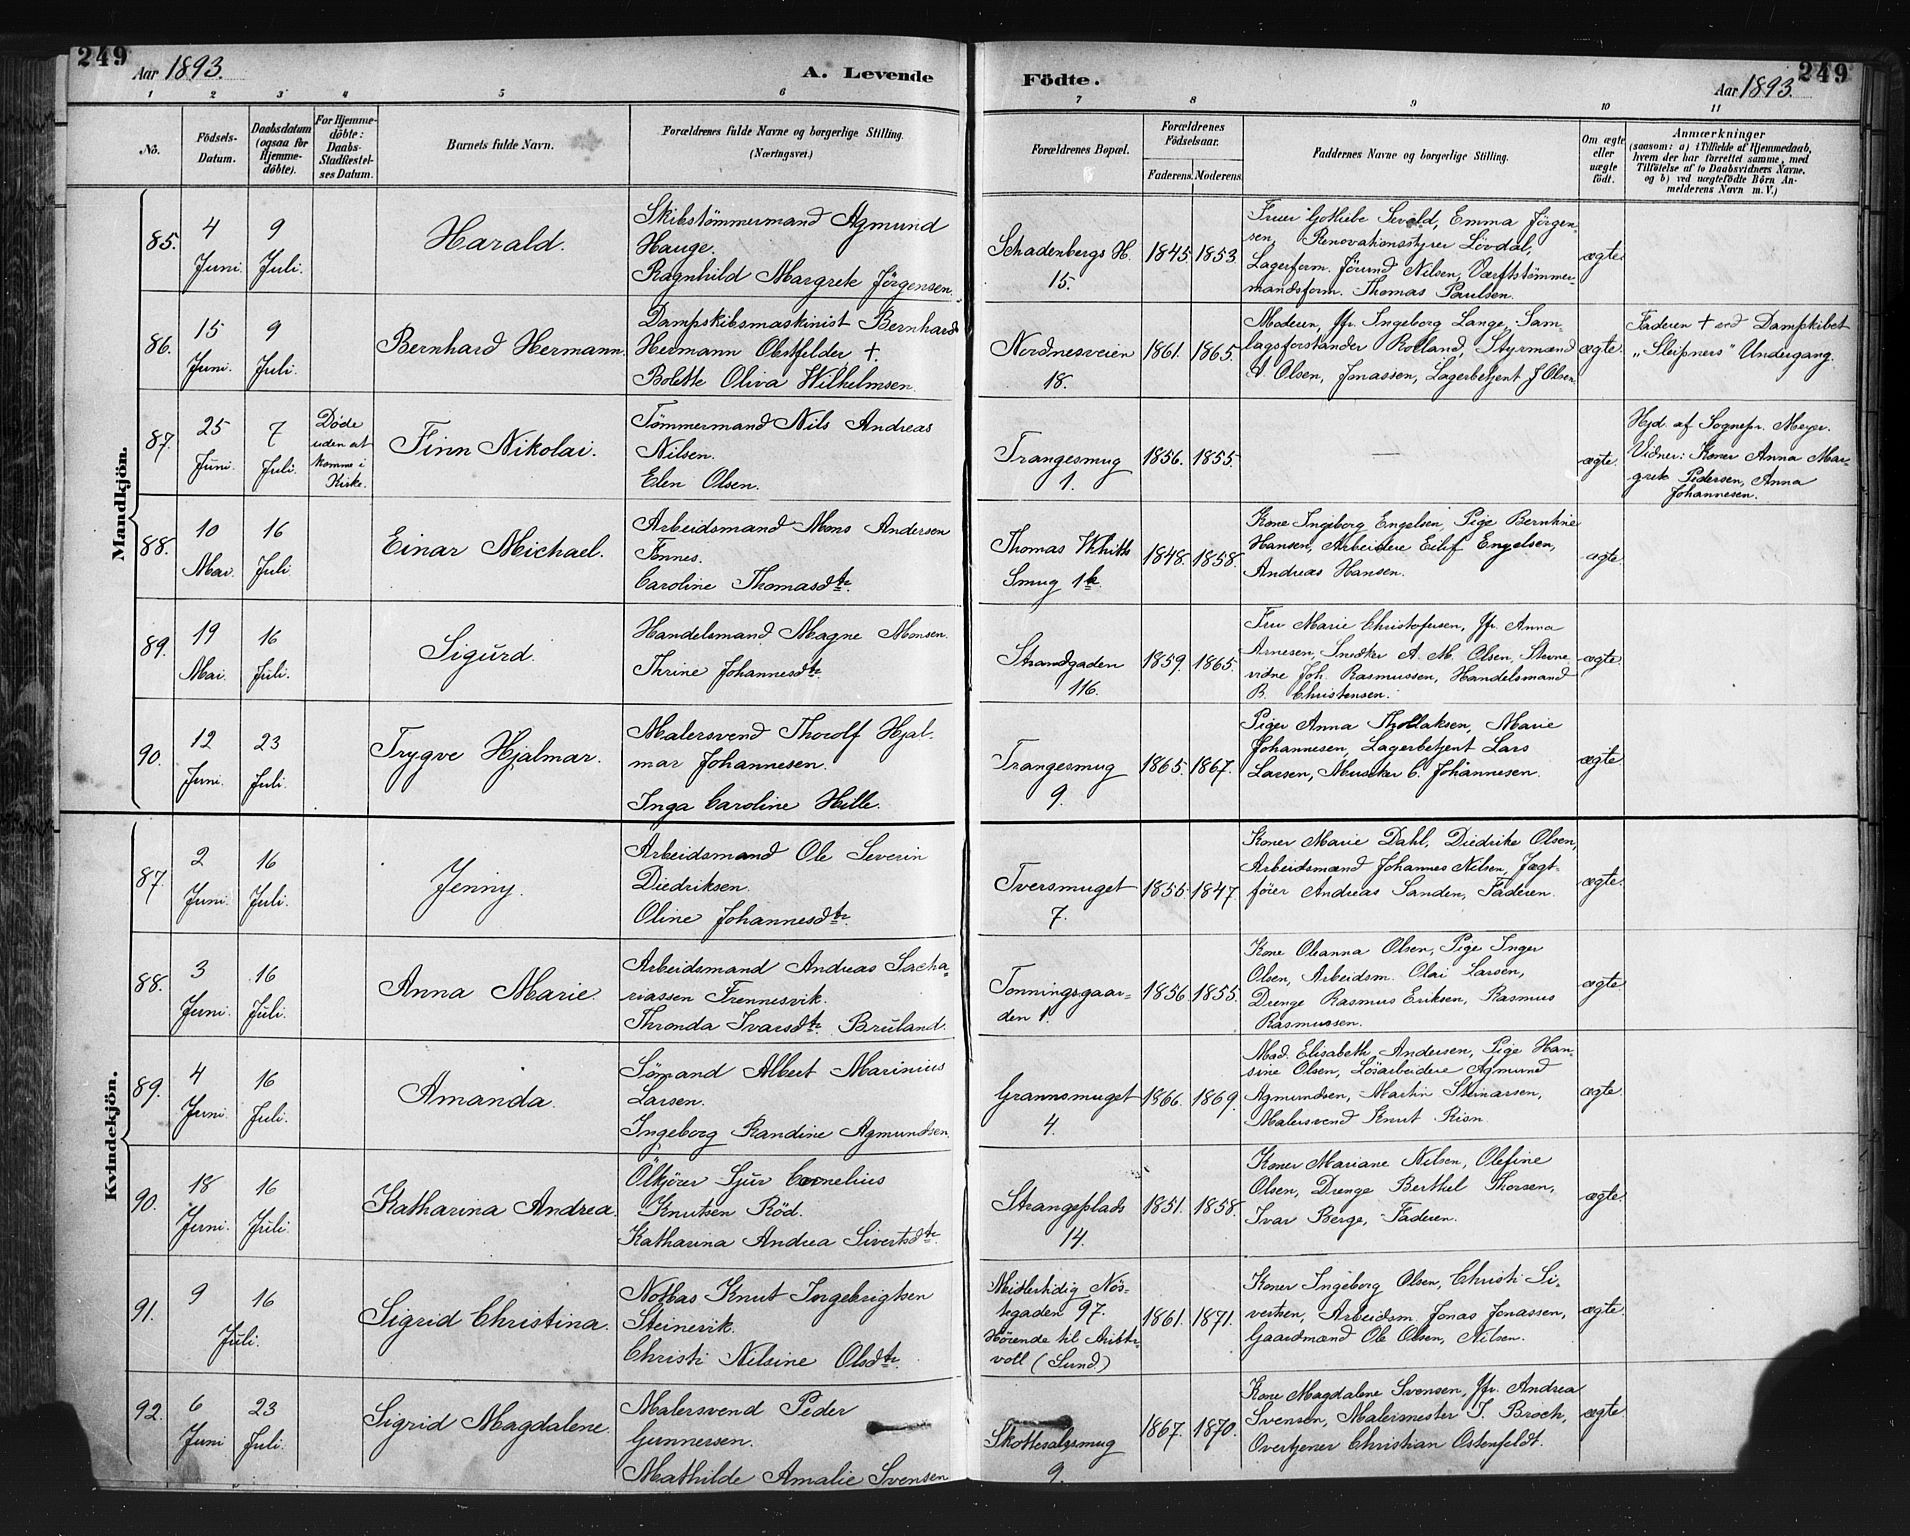 249
Aar 1893.
A. Levende Födte.
Aar 1893.
249
1 2 3 4 5 6 7 8 9 10 11
No.
Födsels-Datum.
Daabsdatum (ogsaa for Hjemme-döbte).
For Hjemme-döbte: Daabs-Stadfæstel-ses Datum.
Barnets fulde Navn.
Forældrenes fulde Navne og borgerlige Stilling. (Næringsvei.)
Forældrenes Bopæl.
Forældrenes Födselsaar.
Faderens. Moderens.
Faddernes Navne og borgerlige Stilling.
Om ægte eller uægte födt.
Anmærkninger
(saasom: a) i Tilfælde af Hjemmedaab,
hvem der har forrettet samme, med
Tilföielse af to Daabsvidners Navne,
og b) ved uægtefödte Börn An-
melderens Navn m. V.)
Mandkjön.
85.
4 Juni.
9 Juli.
Harald.
Skibstømmermand Agmund
Hauge.
Ragnhild Margrete Jörgensen.
Schadenbergs H.
15.
1845. 1853.
Fruer Gothebe Sevold, Emma Jörgen-
sen, Renovationsstyrer Lövdal,
Lagerform. Jörund Nilsen, Værftstömmer-
mandsform. Thomas Paulsen.
ægte
86.
15 Juni.
9 Juli.
Bernhard Hermann.
Dampskibsmaskinist Bernhard
Hermann Obstfelder †.
Bolette Oliva Wilhelmsen.
Nordnesveien
18.
1861. 1865.
Moderen, Jfr. Ingeborg Lange, Sam-
lagsforstander Rolland, Styrmænd
A. Olsen, Jonassen, Lagerbetjent J. Olsen.
ægte.
Faderen † ved Dampskibet
„Sleipners" Undergang.
87.
25 Juni.
7 Juli.
Döde
uden at
komme i
Kirke.
Finn Nikolai.
Tömmermand Nils Andreas
Nilsen.
Elen Olsen.
Trangesmug
1.
1856. 1855.
—
ægte.
Hjd. af Sognepr. Meyer.
Vidner: Koner Anna Mar-
grete Pedersen, Anna
Johannesen.
88.
10 Mai.
16 Juli
Einar Michael.
Arbeidsmand Mons Andersen
Tonnes.
Caroline Thomasdtr.
Thomas Whitts
Smug 1
1848. 1858.
Kone Ingeborg Engelsen, Pige Bernhine
Hansen, Arbeidere Eilif Engelsen,
Andreas Hansen.
ægte
89.
19 Mai.
16 Juli.
Sigurd.
Handelsmand Magne Monsen.
Thrine Johannesdtr.
Strandgaden
116.
1859. 1865.
Fru Marie Christofersen, Jfr. Anna
Arnesen, Snedker A. M. Olsen, Stevne-
vidne Joh. Rasmussen, Handelsmand
B. Christensen.
ægte.
90.
12 Juni.
23 Juli.
Trygve Hjalmar.
Malersvend Thorolf Hjal-
mar Johannesen.
Inga Caroline Hille.
Trangesmug
9.
1865. 1867.
Piger Anna Thollaksen, Marie
Johannesen, Lagerbetjent Lars
Larsen, Musiker C. Johannesen.
ægte
Kvindekjön.
87.
2 Juni.
16 Juli.
Jenny.
Arbeidsmand Ole Severin
Diedriksen.
Oline Johannesdtr.
Tversmuget
7.
1855. 1847.
Koner Marie Dahl, Diedrike Olsen,
Arbeidsmænd Johannes Nilsen, Jægt-
föier Andreas Sanden, Faderen.
ægte.
88.
3 Juni.
16 Juli.
Anna Marie.
Arbeidsmand Andreas Sacha-
riassen Frennesvik.
Thronda Ivarsdtr. Bruland.
Tonningsgaar-
den 1.
1856. 1855.
Kone Oleanna Olsen, Pige Inger
Olsen, Arbeidsm. Olai Larsen,
Drenge Rasmus Eriksen, Rasmus
Rasmussen.
ægte.
89.
4 Juni.
16 Juli.
Amanda.
Sömand Albert Marinius
Larsen.
Ingeborg Randine Agmundsen.
Grannsmuget
4.
1866. 1869.
Mad. Elisabeth Andersen, Pige Han-
sine Olsen, Lösarbeidere Agmund
Agmundsen, Martin Steinarsen,
Malersvend Knut Risn.
ægte.
90.
18 Juni.
16 Juli.
Katharina Andrea.
Ölkjörer Sjur Cornelius
Knutsen Röd.
Katharina Andrea Sivertsdtr.
Strangeplads
14.
1851. 1858.
Koner Mariane Nilsen, Olefine
Olsen, Drenge Berthel Thorsen,
Ivar Berge, Faderen.
ægte.
91.
9 16
Juli.
Sigrid Christina.
Notbas Knut Ingebrigtsen
Steinevik.
Christi Nilsine Olsdtr.
Midlertidig Nös-
tegaden 97.
Hörende til
voll (Sund.)
1861. 1871.
Koner Ingeborg Olsen, Christi Si-
vertsen, Arbeidsm. Jonas Jonassen,
Gaardmænd Ole Olsen, Nilsen.
ægte.
92.
6 Juni
23 Juli.
Sigrid Magdalene.
Malersvend Peder
Gunnersen.
Mathilde Amalie Svensen
Skottesalgsmug
9.
1867. 1870.
Kone Magdalene Svensen, Jfr. Andrea
Svensen, Malermester J. Broch,
Overtjener Christian Ostenfeldt.
ægte.